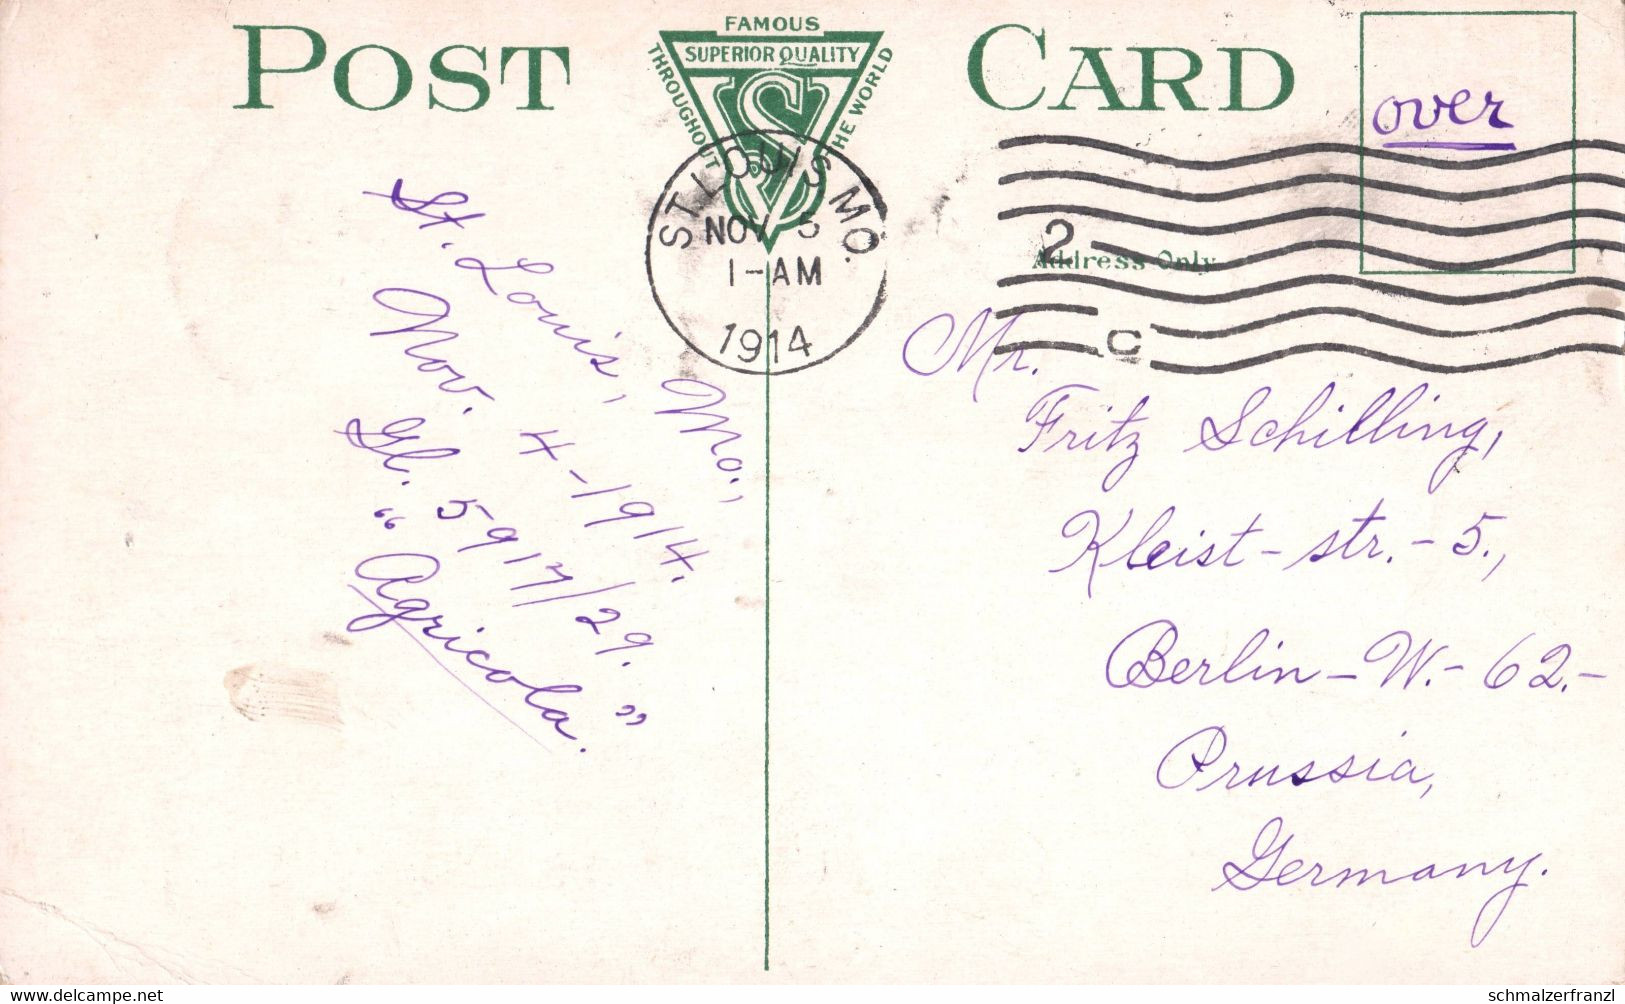 POST CARD
FAMOUS
SUPERIOR QUALITY
THROUGHOUT THE WORLD
over
ST. LOUIS MO.
NOV 5
1-AM
1914
2
C
Address Only
St. Louis, Mo.,
Nov. 4-1914.
Gl. 5917/29.
“Agricola.”
Mr.
Fritz Schilling,
Kleist-str.-5.,
Berlin-W.-62.-
Prussia,
Germany.
www.delcampe.net
schmalzerfranzl